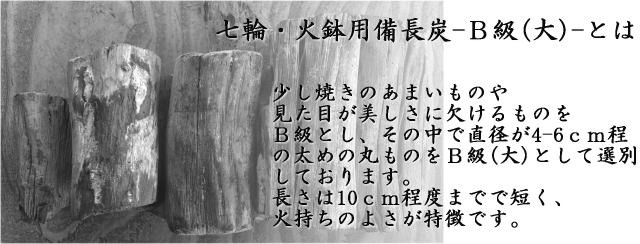 七輪・火鉢用備長炭-B級(大)-とは
少し焼きのあまいものや
見た目が美しさに欠けるものを
B級とし、その中で直径が4-6cm程
の太めの丸ものをB級(大)として選別
しております。
長さは10cm程度までで短く、
火持ちのよさが特徴です。